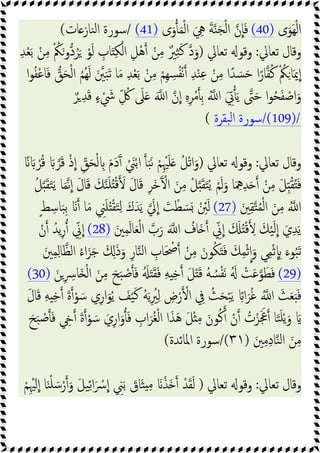 الْهَوَى (40) فَإِنَّ الْجَنَّةَ هِيَ الْمَأْوَى (41) /سورة النازعات)
وقال تعالي: وقوله تعالي (وَدَّ كَثِيرٌ مِّنْ أَهْلِ الْكِتَابِ لَوْ يَرُدُّونَكُم مِّنْ بَعْدِ
إِيمَانِكُمْ كُفَّارًا حَسَدًا مِّنْ عِنْدِ أَنْفُسِهِم مِّنْ بَعْدِ مَا تَبَيَّنَ لَهُمُ الْحَقُّ فَاعْفُوا
وَاصْفَحُوا حَتَّى يَأْتِيَ اللَّهُ بِأَمْرِهِ إِنَّ اللَّهَ عَلَى كُلِّ شَيْءٍ قَدِيرٌ
(109)/سورة البقرة )
وقال تعالي: وقوله تعالي (وَاتْلُ عَلَيْهِمْ نَبَأَ ابْنَيْ آدَمَ بِالْحَقِّ إِذْ قَرَّبَا قُرْبَانًا
فَتُقُبِّلَ مِنْ أَحَدِهِمَا وَلَمْ يُتَقَبَّلْ مِنَ الْآخَرِ قَالَ لَأَقْتُلَنَّكَ قَالَ إِنَّمَا يَتَقَبَّلُ
اللَّهُ مِنَ الْمُتَّقِينَ (27) لَئِنْ بَسَطْتَ إِلَيَّ يَدَكَ لِتَقْتُلَنِي مَا أَنَا بِبَاسِطٍ
يَدِيَ إِلَيْكَ لِأَقْتُلَكَ إِنِّي أَخَافُ اللَّهَ رَبَّ الْعَالَمِينَ (28) إِنِّي أُرِيدُ أَنْ
تَبُوءَ بِإِثْمِي وَإِثْمِكَ فَتَكُونَ مِنْ أَصْحَابِ النَّارِ وَذَلِكَ جَزَاءُ الظَّالِمِينَ
(29) فَطَوَّعَتْ لَهُ نَفْسُهُ قَتْلَ أَخِيهِ فَقَتَلَهُ فَأَصْبَحَ مِنَ الْخَاسِرِينَ (30)
فَبَعَثَ اللَّهُ غُرَابًا يَبْحَثُ فِي الْأَرْضِ لِيُرِيَهُ كَيْفَ يُوَارِي سَوْأَةَ أَخِيهِ قَالَ
يَا وَيْلَتَا أَعَجَزْتُ أَنْ أَكُونَ مِثْلَ هَذَا الْغُرَابِ فَأُوَارِيَ سَوْأَةَ أَخِي فَأَصْبَحَ
مِنَ النَّادِمِينَ (٣١)/سورة المائدة)
وقال تعالي: وقوله تعالي ( لَقَدْ أَخَذْنَا مِيثَاقَ بَنِي إِسْرَائِيلَ وَأَرْسَلْنَا إِلَيْهِمْ